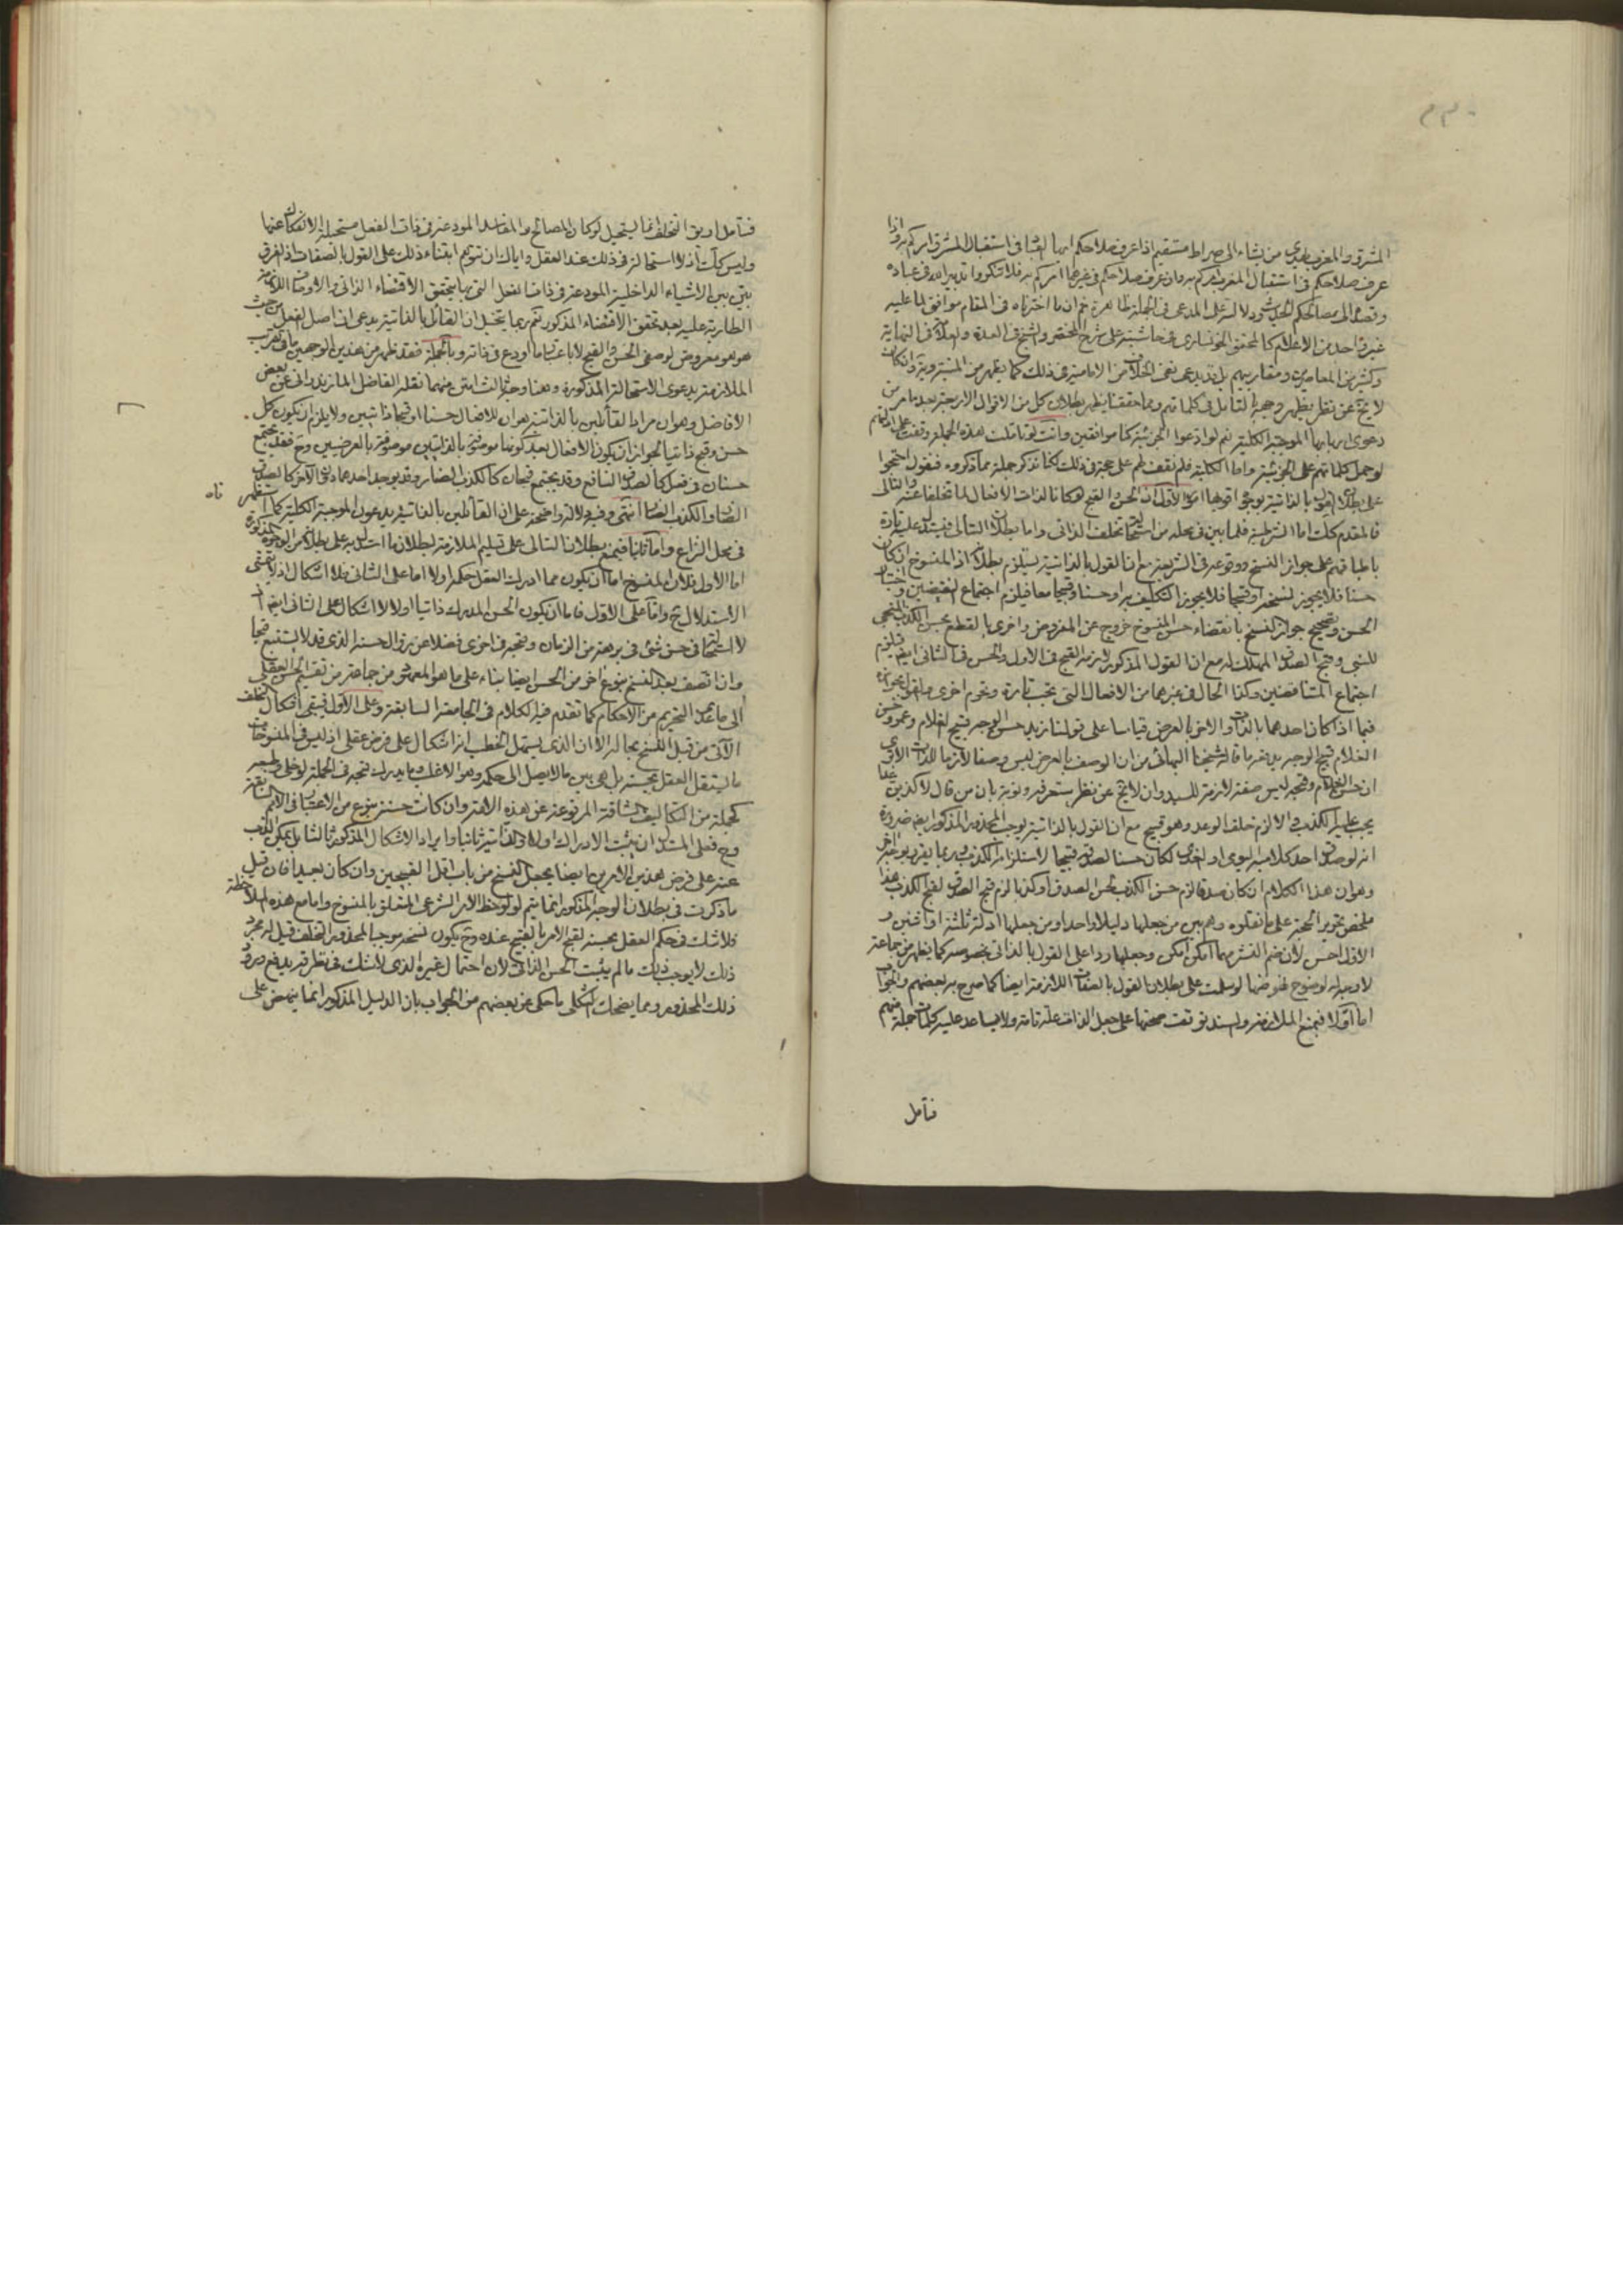 المشرق والمغرب يهدي من يشاء الى صراط مستقيم اذا عرف صلاحكم ايها العباد في استقبال المشرق امركم به واذا
عرف صلاحكم في استقبال المغرب امركم به وان عرف صلاحكم في غيرهما امركم به فلا تنكروا تدبير الله في عباده
وقصده الى مصالحكم الحديث ودلالته على المدعى في الجملة ظاهرة ثم ان ما اخترناه في المقام موافق لما عليه
غير واحد من الاعلام كالمحقق الخونساري في حاشيته على شرح المختصر والشيخ في العدة والعلامة في النهاية
وكثير من المعاصرين ومقاربيهم بل قد يدعى نفي الخلاف من الامامية في ذلك كما يظهر من
لا يخ عن نظر يظهر وجهه بالتأمل في كلماتهم ومما حققنا يظهر بطلان كل من الاقوال الاربعة بعد ما مر من
دعوى اربابها الموجبة الكلية نعم لو ادعوا الجزئية كنا موافقين وانت لو تأملت هذه الجملة وقفت على
لو حمل كلماتهم على الجزئية واما الكلية فلم نقف لهم على حجة في ذلك لكنا نذكر جملة مما ذكروه فنقول احتجوا
على بطلان القول بالذاتية بوجوه اقواها امور الاول ان الحسن والقبح لو كانا لذات الافعال لما تخلفا عنه والتالي
فالمقدم كك اما الشرطية فلما بين في محله من استحالة تخلف الذاتي واما بطلان التالي فيستدل عليه تارة
باطباقهم على جواز النسخ ووقوعه في الشريعة مع ان القول بالذاتية يستلزم بطلانه اذ المنسوخ ان كان
حسنا فلا يجوز نسخه او قبيحا فلا يجوز التكليف به او حسنا وقبيحا معا فيلزم اجتماع النقيضين
الحسن وتصحيح جواز النسخ بانقضاء حسن المنسوخ خروج عن المفروض واخرى بالقطع بحسن الكذب المنجي
للنبي وقبح الصدق المهلك له مع ان القول المذكور لازمه القبح في الاول والحسن في الثاني ايضا فيلزم
اجتماع المتناقضين وكذا الحال في غيرهما من الافعال التي تجب تارة وتحرم اخرى
فيما اذا كان احدهما بالذات والاخر بالعرض قياسا على قولنا زيد حسن الوجه قبيح الغلام وعمرو حسن
الغلام قبيح الوجه يدفعه ما قاله شيخنا البهائي من ان الوصف بالعرض ليس وصفا لازما للذات الا ترى
ان حسن الغلام وقبحه ليس صفة لازمة للسيد وان لا يخ عن نظر ستعرفه وثوبة بان من قال لاكذبن غدا
يجب عليه الكذب والا لزم خلف الوعد وهو قبيح مع ان القول بالذاتية يوجب المحذور المذكور ايضا ضرورة
انه لو صدق احد كلاميه اليومي او الغدي لكان حسنا لصدقه قبيحا لاستلزامه الكذب وربما يقرر بوجه اخر
وهو ان هذا الكلام ان كان صدقا لزم حسن الكذب لحسن الصدق او كذبا لزم قبح الصدق لقبح الكذب هذا
ملخص تحرير الحجة على ما نقلوه وهم بين من جعلها دليلا واحدا ومن جعلها ادلة ثلثة او اثنين و
الاول احسن لان ضم النشر مهما امكن امكن وجعلها ردا على القول بالذاتي بخصوصه كما يظهر من جماعة
لا وجه له لوضوح نهوضها لو سلمت على بطلان القول بالصفات اللازمة ايضا كما صرح به بعضهم والجواب
اما اولا فبمنع الملازمة والسند توقفت صحتها على جعل الذات علة تامة ولا يساعد عليه كلمات جملة منهم
فتأمل
فتأمل او بق التخلف انما يستحيل لو كان المصالح والمفاسد المودعة في ذات الفعل مستحيلة الانفكاك عنها
وليس كك اذ لا استحالة في ذلك عند العقل واياك ان تتوهم ابتناء ذلك على القول بالصفات اذ الفرق
بين بين الاشياء الداخلية المودعة في ذات الفعل التي بها يتحقق الاقتضاء الذاتي والاوصاف اللازمة
الطارية عليه بعد تحقق الاقتضاء المذكور نعم ربما يتخيل ان القائل بالذاتية يدعي ان اصل الفعل من حيث
هو هو معروض لوصفي الحسن والقبح لا باعتبار ما اودع في ذاته وبالجملة فقد ظهر من هذين الوجهين ما في
الملازمة بدعوى الاستحالة المذكورة وهنا وجه ثالث امتن منهما نقله الفاضل المازندراني عن بعض
الافاضل وهو ان مراد القائلين بالذاتية هو ان للافعال حسنا او قبحا ذاتيين ولا يلزم ان يكون كل
حسن وقبح ذاتيا لجواز ان يكون الافعال بعد كونها موصوفة بالذاتيين موصوفة بالعرضيين وح فقد يجتمع
حسنان في فعل كالصدق النافع وقد يجتمع قبحان كالكذب الضار وقد يوجد احدهما دون الاخر كالصدق
الضار والكذب النافع انتهى وفيه دلالة واضحة على ان القائلين بالذاتية يدعون الموجبة الكلية كما استظهر ناه
في محل النزاع واما ثانيا فبمنع بطلان التالي على تسليم الملازمة لبطلان ما استدل به على بطلانه من الوجوه المذكورة
اما الاول فلان المنسوخ اما ان يكون مما ادرك العقل حكمه اولا اما على الثاني فلا اشكال اذ لا يتمشى
الاستدلال ح واما على الاول فاما ان يكون الحسن المدرك ذاتيا اولا لا اشكال على الثاني ايضا اذ
لا استحالة في حسن شئ في برهة من الزمان وقبحه في اخرى فضلا عن زوال حسنه الذي قد لا يستتبع قبحا
وان اتصف بعد النسخ بنوع اخر من الحسن ايضا بناء على ما هو المعهود من جماعة من تقسيم الحسن العقلي
الى ما عدى التحريم من الاحكام كما تقدم فيه الكلام في الجامعة السابقة وعلى الاول فيبقى اشكال التخلف
الآتي من قبل النسخ بحاله الا ان الذي يسهل الخطب انه اشكال على فرض عقلي اذ ليس في المنسوخات
ما يستقل العقل بحسنه بل هي بين ما لا يصل الى حكمه وهو الاغلب وما يدرك قبحه في الجملة لو خلى وطبعه
كجملة من التكاليف الشاقة المرفوعة عن هذه الامة وان كانت حسنة بنوع من الاعتبار في الامم السابقة
وح فعلى المستدل ان يثبت الادراك اولا والذاتية ثانيا وايراد الاشكال المذكور ثالثا بل يمكن الذب
عنه على فرض هذين الامرين ايضا بجعل النسخ من باب اقل القبيحين وان كان بعيدا فان قيل
ما ذكرت في بطلان الوجه المذكور انما يتم لو لوحظ الامر الشرعي المتعلق بالمنسوخ واما مع هذه الملاحظة
فلا شك في حكم العقل بحسنه لقبح الامر بالقبيح عنده وح يكون نسخه موجبا لمحذور التخلف قيل له مجرد
ذلك لا يوجب ذلك ما لم يثبت الحسن الذاتي لان احتمال غيره الذي لا شك في تطرقه يدفع ورود
ذلك المحذور ومما يضحك الثكلى ما حكي عن بعضهم من الجواب بان الدليل المذكور انما ينهض على